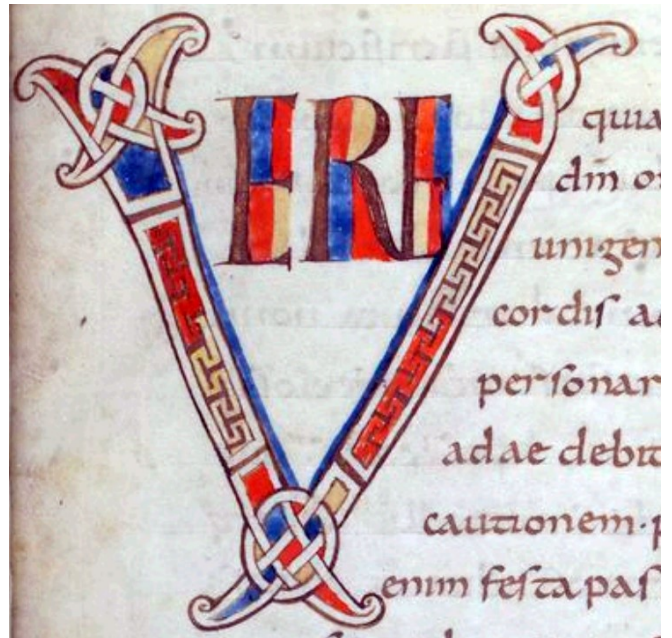 VERE
quia
dm̄ o
unigen
cordis a
personar
adae debit
cautionem · p
enim festa pas